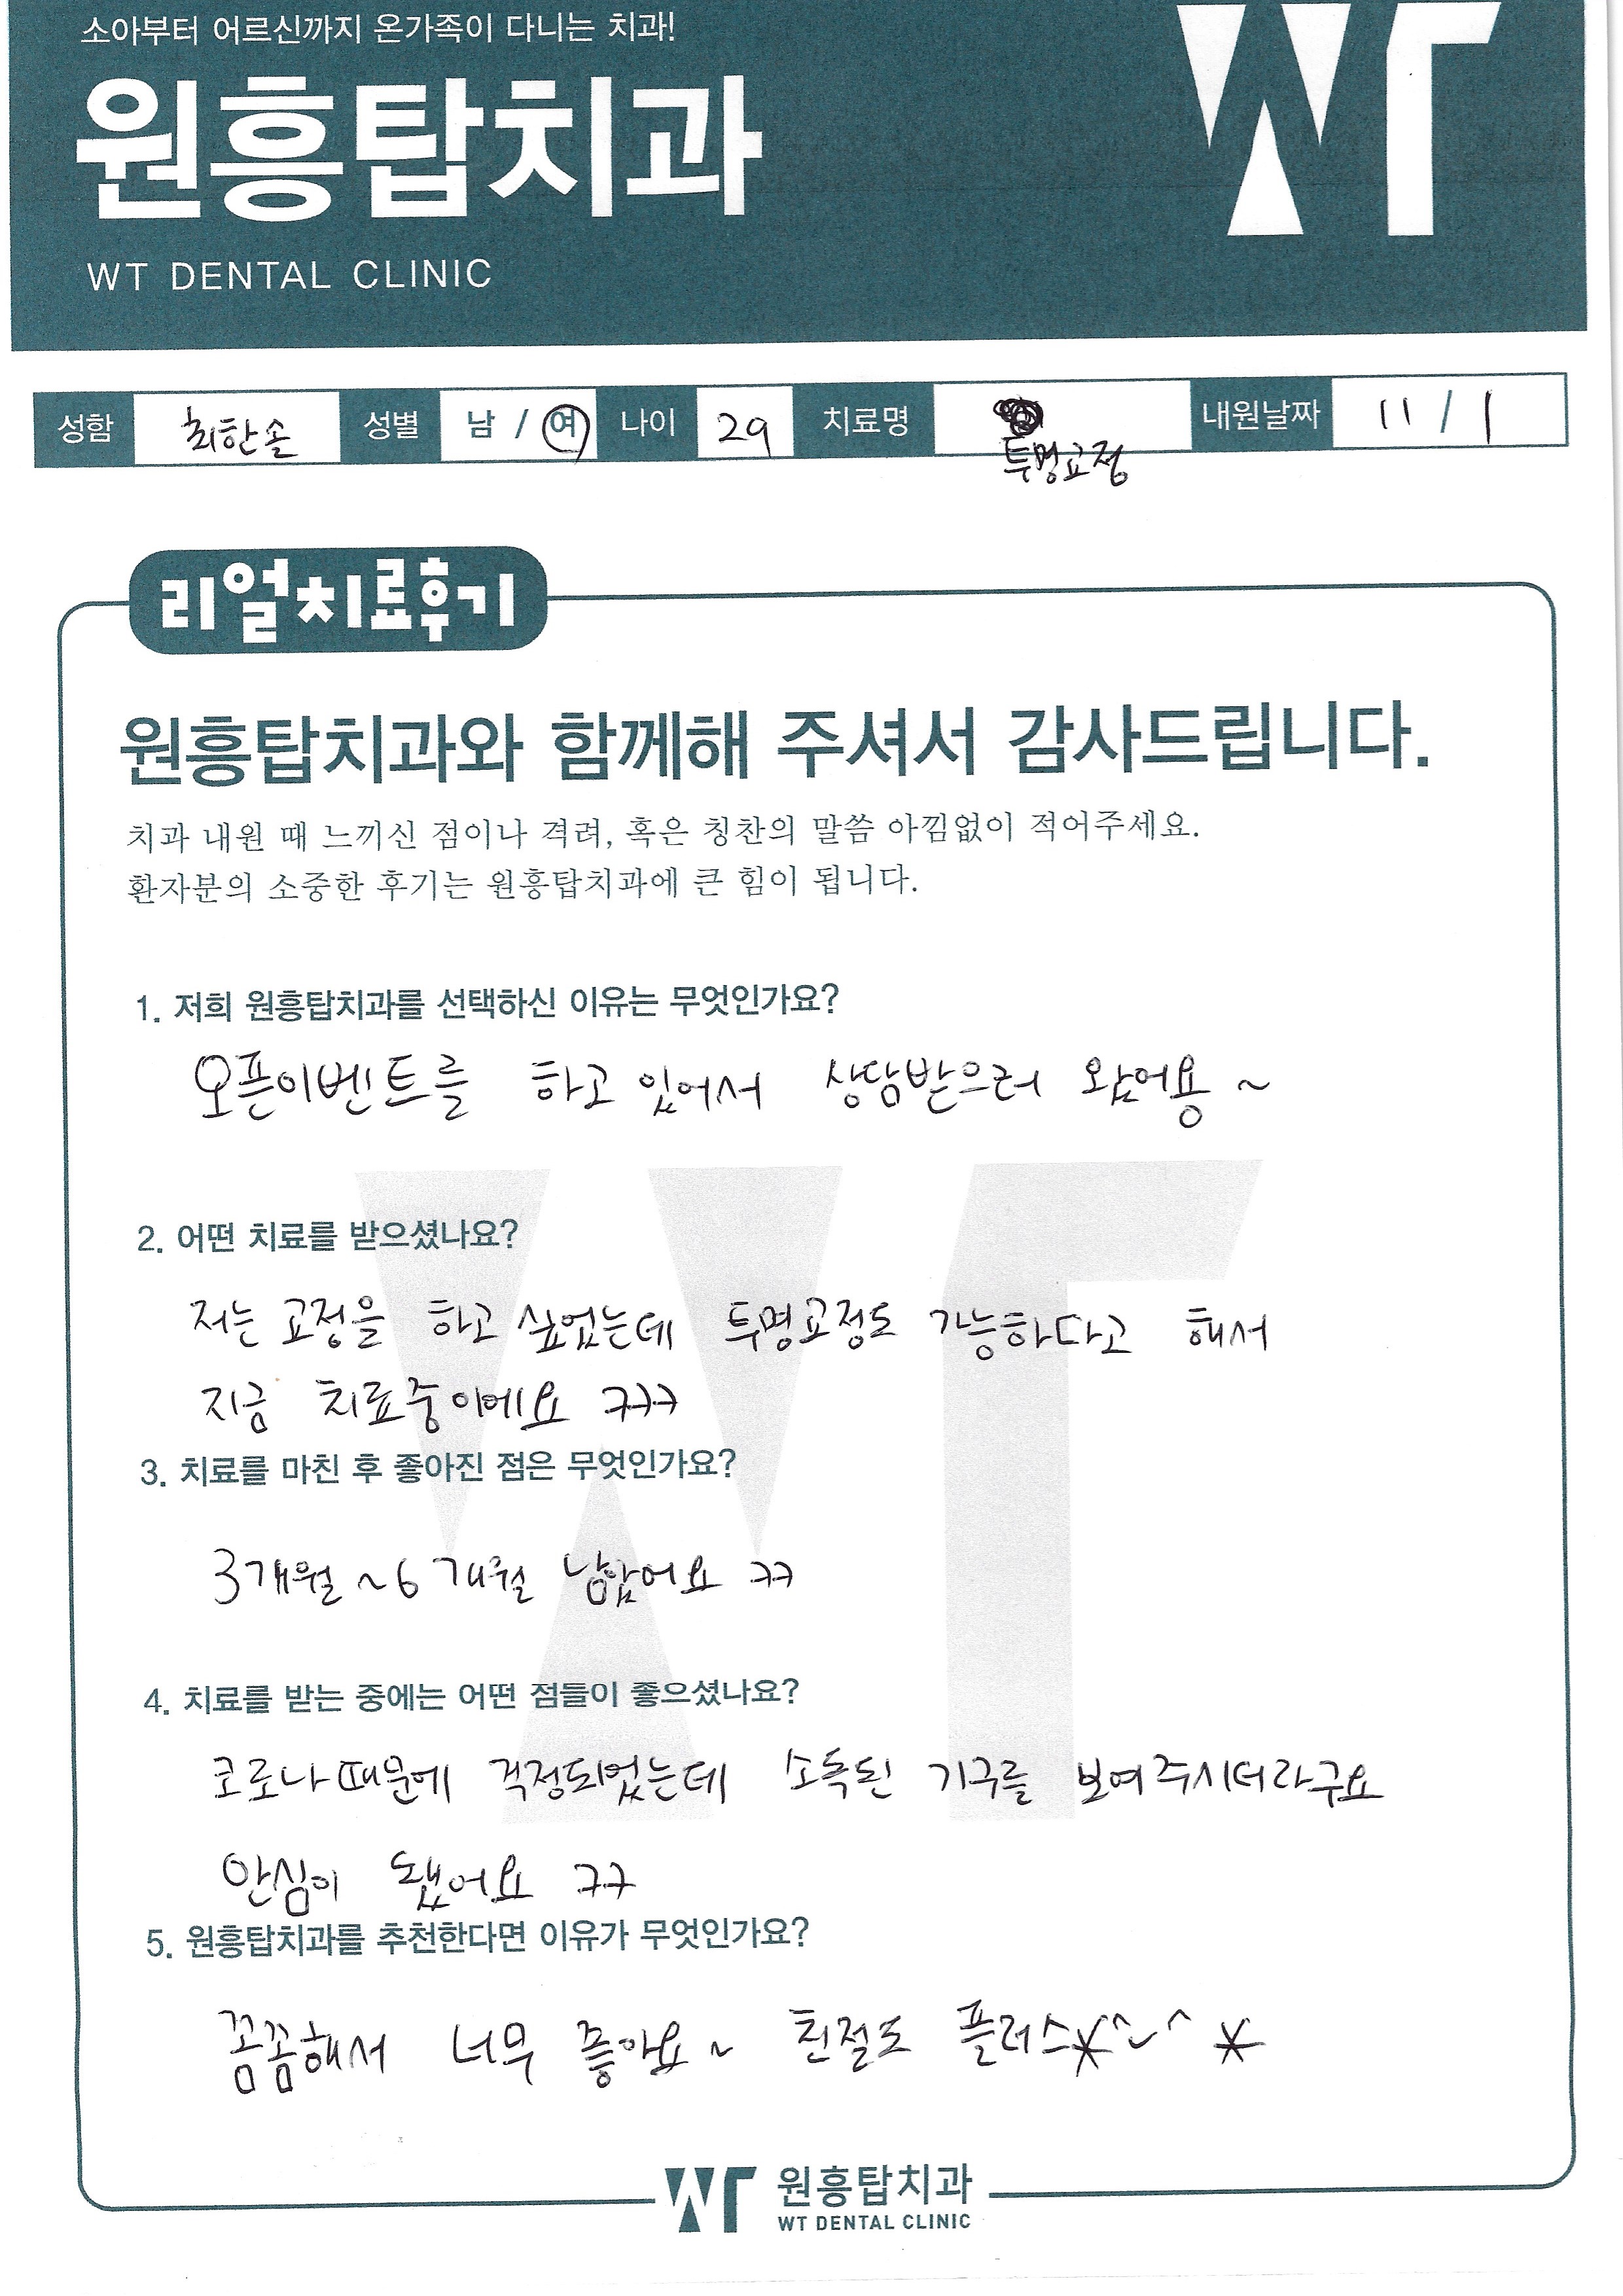 소아부터 어르신까지 온가족이 다니는 치과!
원흥탑치과
WT DENTAL CLINIC
WT
성함 최한솔 성별 남 / 여 나이 29 치료명 투명교정 내원날짜 11 / 1
리얼치료후기
원흥탑치과와 함께해 주셔서 감사드립니다.
치과 내원 때 느끼신 점이나 격려, 혹은 칭찬의 말씀 아낌없이 적어주세요.
환자분의 소중한 후기는 원흥탑치과에 큰 힘이 됩니다.
1. 저희 원흥탑치과를 선택하신 이유는 무엇인가요?
오픈이벤트를 하고 있어서 상담받으러 왔어용 ~
2. 어떤 치료를 받으셨나요?
저는 교정을 하고 싶었는데 투명교정도 가능하다고 해서
지금 치료중이에요 ㅋㅋㅋ
3. 치료를 마친 후 좋아진 점은 무엇인가요?
3개월 ~ 6개월 남았어요 ㅋㅋ
4. 치료를 받는 중에는 어떤 점들이 좋으셨나요?
코로나때문에 걱정되었는데 소독된 기구를 보여주시더라구요
안심이 됐어요 ㅋㅋ
5. 원흥탑치과를 추천한다면 이유가 무엇인가요?
꼼꼼해서 너무 좋아요~ 친절도 플러스*^~^*
WT 원흥탑치과
WT DENTAL CLINIC